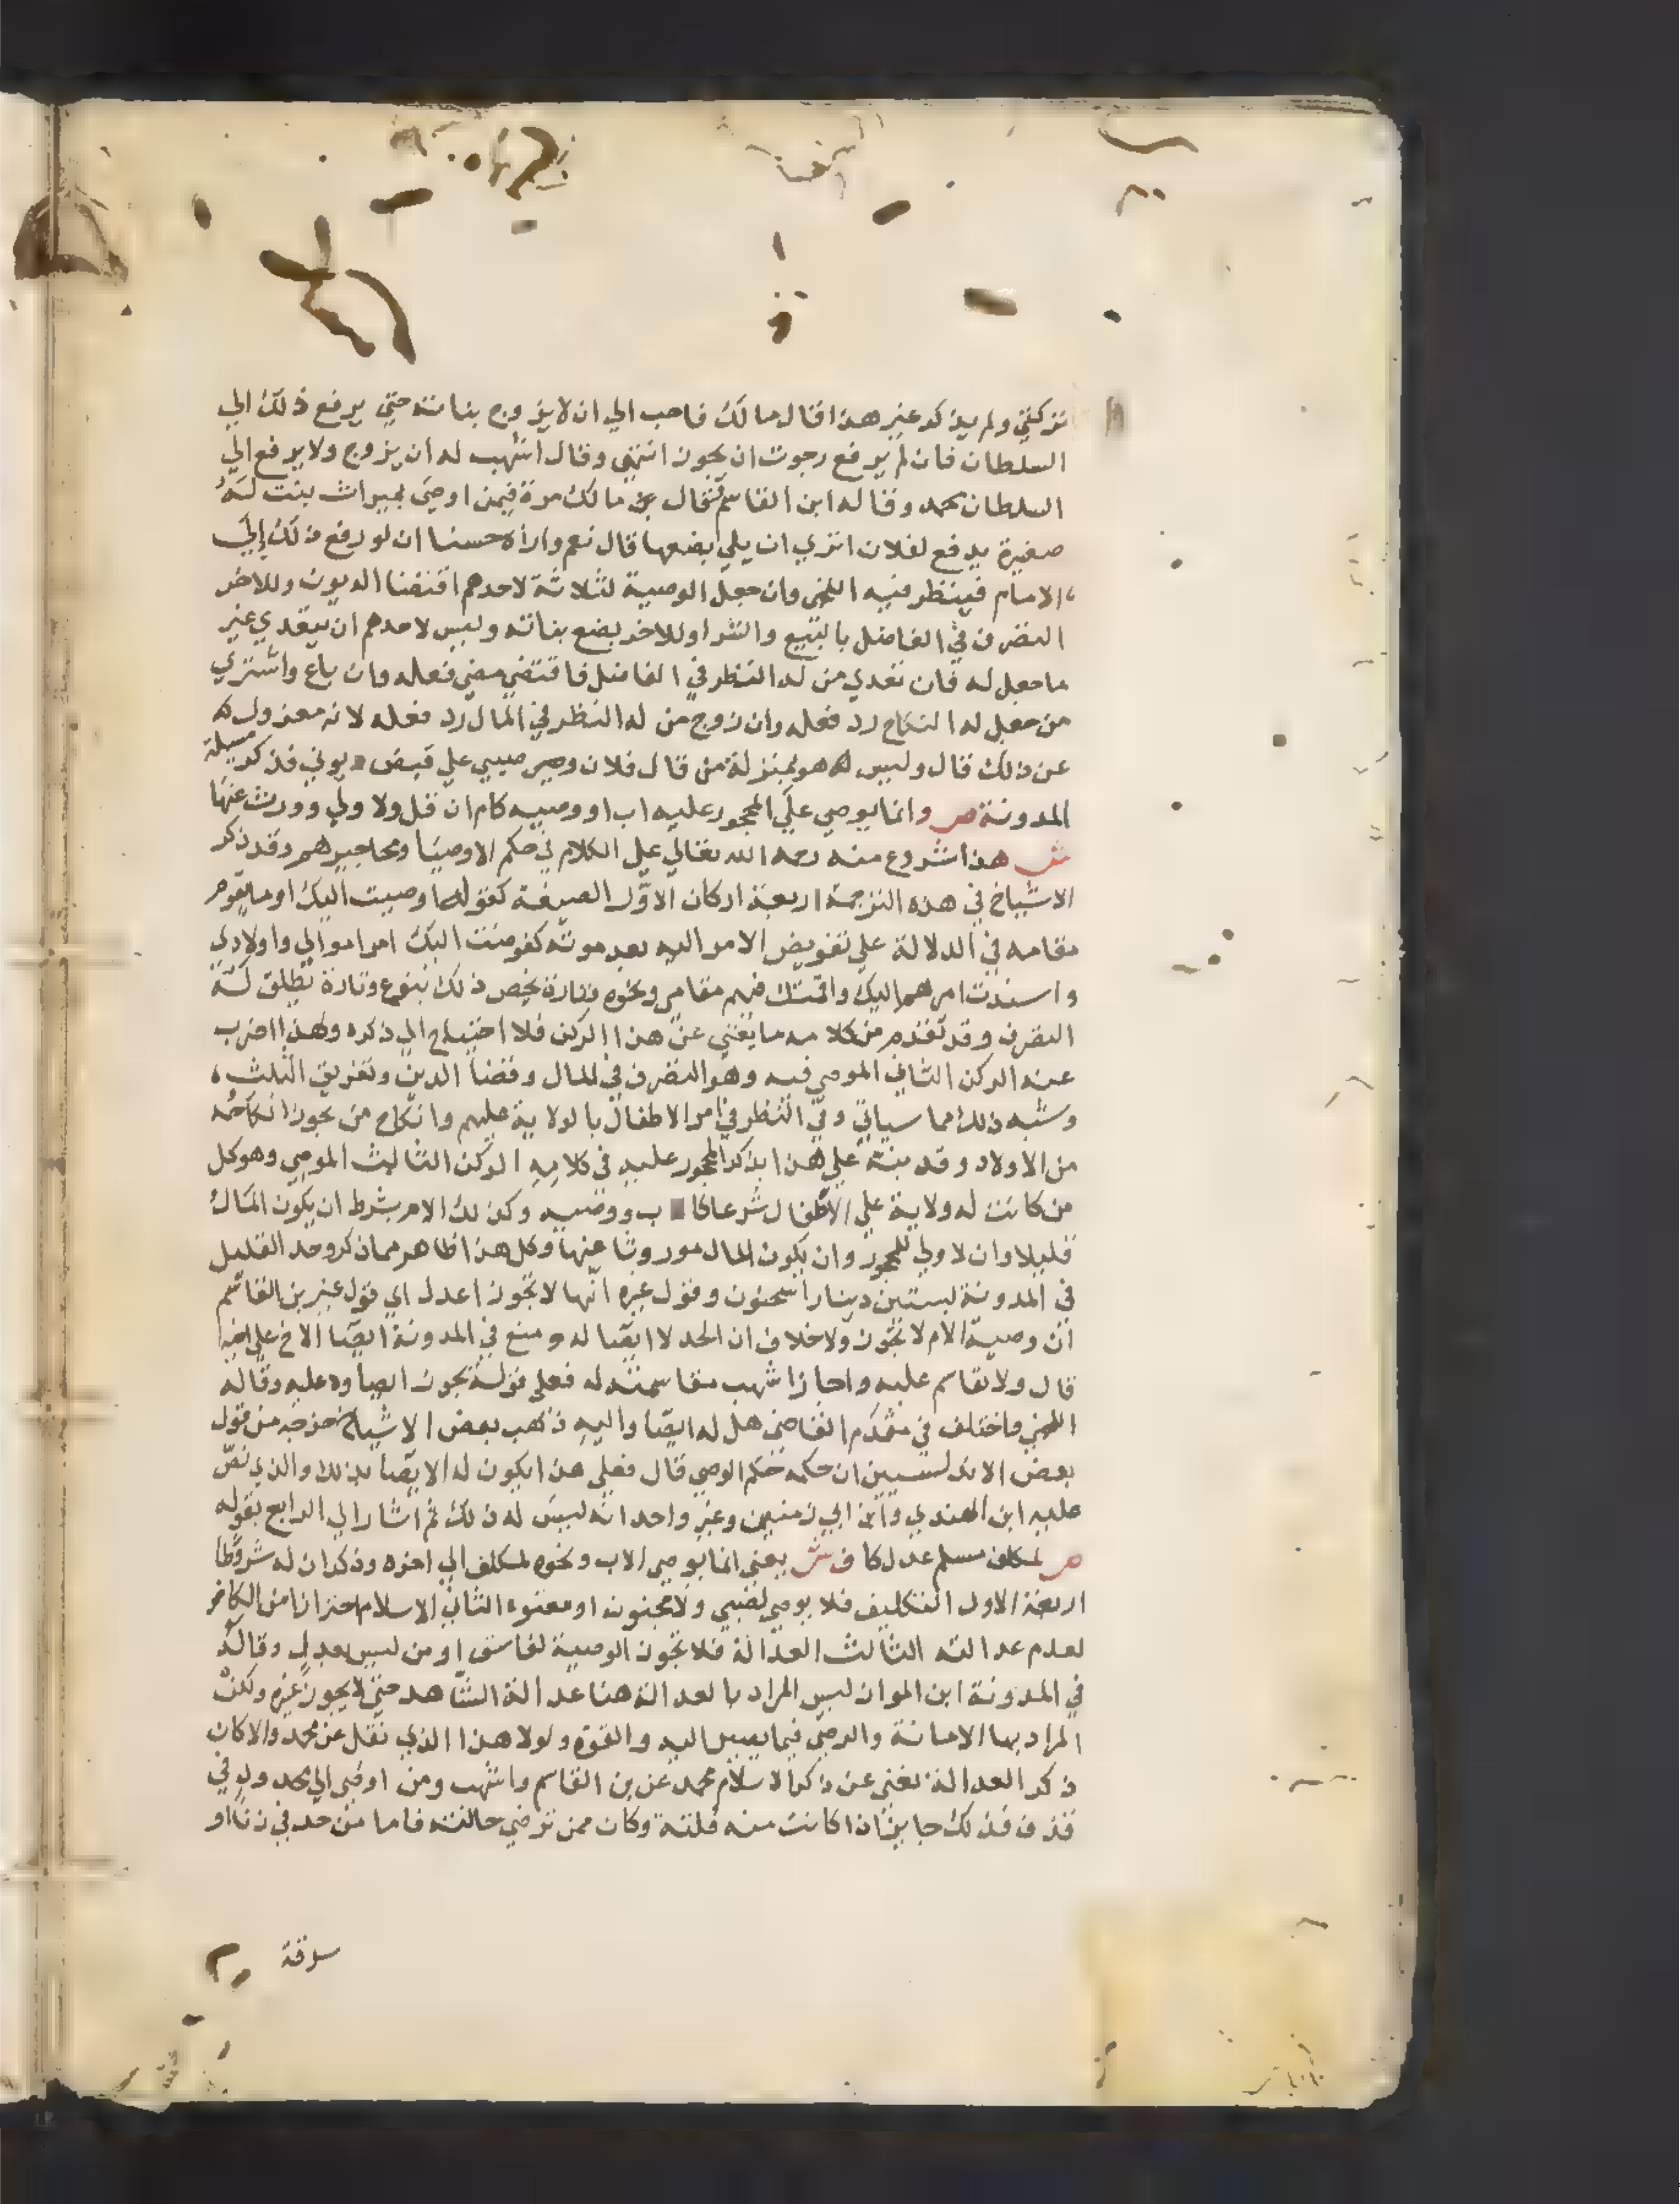 تركتي ولم يذكر غير هذا قال مالك فاحب الي ان لا يزوج بناته حتي يرفع ذلك الي
السلطان فان لم يرفع رجوت ان يجوز انتهي وقال اشهب له ان يزوج ولا يرفع الي
السلطان محمد وقاله ابن القاسم فقال عن مالك مرة فيمن اوصي بميراث بنت له
صغيرة يدفع لفلان اتري ان يلي بضعها قال نعم واراه حسنا ان لو رفع ذلك إلي
الامام فينظر فيه اللخمي وان جعل الوصية لثلاثة لاحدهم اقتضا الديون وللاخر
التصرف في الفاضل بالبيع والشرا وللاخر بضع بناته وليس لاحدهم ان يتعدي غير
ما جعل له فان تعدي من له النظر في الفاضل فاقتضي مضي فعله وان باع واشتري
من جعل له النكاح رد فعله وان زوج من له النظر في المال رد فعله لانه معزول
عن ذلك قال وليس هو بمنزلة من قال فلان وصيي علي قبض ديوني فذكر مسيلة
المدونة ص وانما يوصي علي المحجور عليه اب او وصيه كام ان قل ولا ولي وورث عنها
ش هذا شروع منه رحمه الله تعالي علي الكلام في حكم الاوصيا ومحاجيرهم وقد ذكر
الاشياخ في هذه الترجمة اربعة اركان الاول الصيغة كقوله اوصيت اليك او ما يقوم
مقامه في الدلالة علي تفويض الامر اليه بعد موته كفوضت اليك امر اموالي واولادي
واسندت امرهم اليك واقمتك فيهم مقامي ونحوه وتارة يخص ذلك بنوع وتارة يطلق له
التصرف وقد تقدم من كلامه ما يغني عن هذا الركن فلا احتياج الي ذكره ولهذا اضرب
عنه الركن الثاني الموصي فيه وهو التصرف في المال وقضا الدين وتفريق الثلث
وشبه ذلك مما سياتي وفي النظر في امر الاطفال بالولاية عليهم وانكاح من يجوز انكاحه
من الاولاد وقد نبه علي هذا بذكر المحجور عليه في كلامه الركن الثالث الموصي وهو كل
من كانت له ولاية علي الاطفال شرعا كالاب ووصيه وكذلك الام بشرط ان يكون المال
قليلا وان لا ولي للمحجور وان يكون المال موروثا عنها وكل هذا ظاهر مما ذكر وحد القليل
في المدونة بستين دينارا سحنون وقول غيره انها لا تجوز اعدل اي قول غير بن القاسم
ان وصية الام لا تجوز ولا خلاف ان الجد لا ايصا له ومنع في المدونة ايصا الاخ علي اخيه
قال ولا يقاسم عليه واجاز اشهب مقاسمته له فعلي قوله يجوز ايصاوه عليه وقاله
اللخمي واختلف في مقدم القاضي هل له ايصا واليه ذهب بعض الاشياخ من قول
بعض الاندلسيين ان حكمه حكم الوصي قال فعلي هذا يكون له الايصا بذلك والذي نص
عليه ابن الهندي وابن ابي زمنين وغير واحد انه ليس له ذلك ثم اشار الي الرابع بقوله
ص لمكلف مسلم عدل كاف ش يعني انما يوصي الاب ونحوه لمكلف الي اخره وذكر ان له شروطا
اربعة الاول التكليف فلا يوصي لصبي ولا مجنون او معتوه الثاني الاسلام احترازا من الكافر
لعدم عدالته الثالث العدالة فلا تجوز الوصية لفاسق او من ليس بعدل وقاله
في المدونة ابن المواز ليس المراد بالعدالة هنا عدالة الشاهد حتي لا يجوز غيره ولكن
المراد بها الامانة والرضي فيما يصير اليه والقوة ولولا هذا الذي نقل عن محمد والا كان
ذكر العدالة يغني عن ذكر الاسلام محمد عن بن القاسم واشهب ومن اوصي الي محدود في
قذف فذلك جايز اذا كانت منه فلتة وكان ممن ترضي حالته فاما من حد في زنا او
سرقة